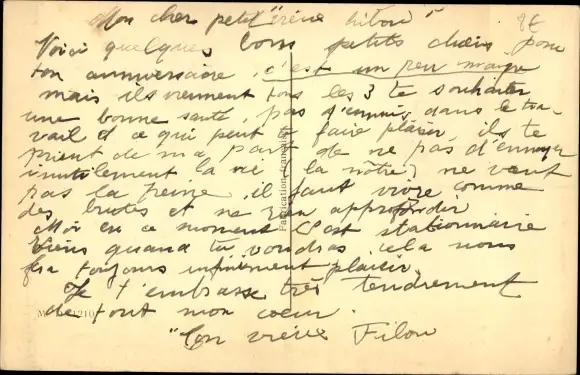 Mon cher petit "vieux hibou"
Voici quelques bons petits chiens pour
ton anniversaire, c'est un peu maigre
mais ils viennent tous les 3 te souhaiter
une bonne santé, pas d'ennuis dans le tra-
vail et ce qui peut te faire plaisir, ils te
prient de ma part de ne pas d'ennuyer
inutilement la vie (la nôtre) ne vaut
pas la peine, il faut vivre comme
des brutes et ne rien approfondir
Moi en ce moment c'est stationnaire
Viens quand tu voudras cela nous
fera toujours infiniment plaisir.
Je t'embrasse très tendrement
de tout mon coeur.
"Ton vieux Filou
Fabrication française